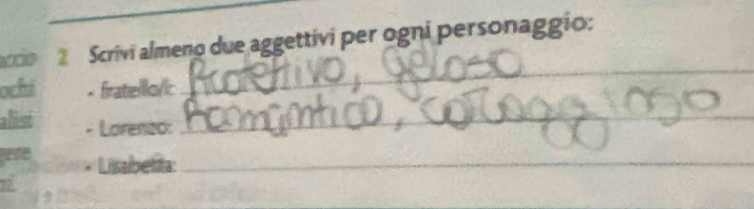 2 Scrivi almeno due aggettivi per ogni personaggio:
- fratello/i: Protettivo, geloso
- Lorenzo: Romantico, coraggioso
- Lisabetta: